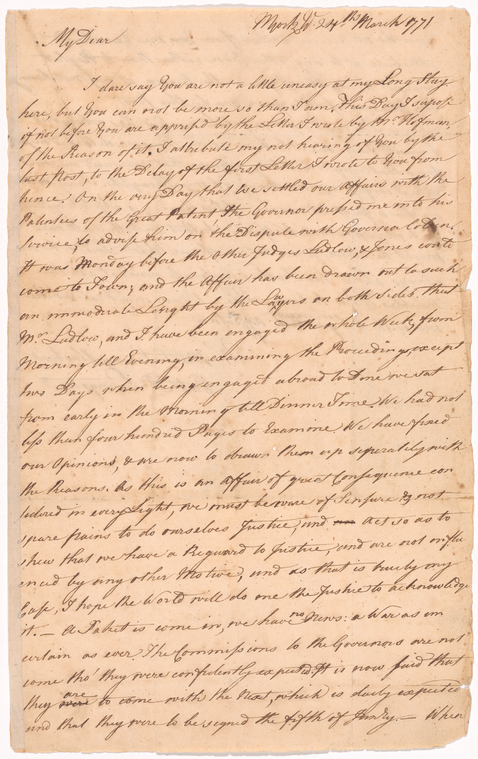 York 24th March 1771
My Dear
I dare say You are not a little uneasy at my Long Stay
here, but You can not be more so than I am. This Day I supose
if not before You are apprised by the Letter I wrote by Mr. Hofman
of the Reason of it. I attribute my not hearing of You by the
last Post, to the Delay of the first Letter I wrote to You from
hence. On the very Day that we settled our affairs with the
Patentees of the Great Patent The Governor pressed me into his
Service, to advise him on the Dispute with Governor
It was Monday before the other Judges Ludlow, & Jones could
come to Town; and the Affair has been drawn out to such
an immoderate Lenght by the Lawyers on both sides, that
Mr. Ludlow, and I have been engaged the whole Week, from
Morning till Evening, in examining the Proceedings, except
two Days when being engaged abroad to Dine we sat
from early in the Morning till Dinner Time. We had not
less than four hundred Pages to Examine. We have fixed
our Opinions, & are now to drawn them up seperately with
the Reasons. As this is an affair of great Consequence con
sidered in every Light, we must beware of Censure & not
spare pains to do ourselves Justice, and act so as to
shew that we have a Reguard to Justice, and are not influ
enced by any other Motive, and as that is truly my
Case, I hope the World will do me the Justice to acknowledge
it. — A Paket is come in, we have no News: a War as un
certain as ever. The Commissions to the Governors are not
come tho' they were confidently expected. It is now said that
they are to come with the Next, which is daily expected
and that they were to be signed the fifth of Janry. — When